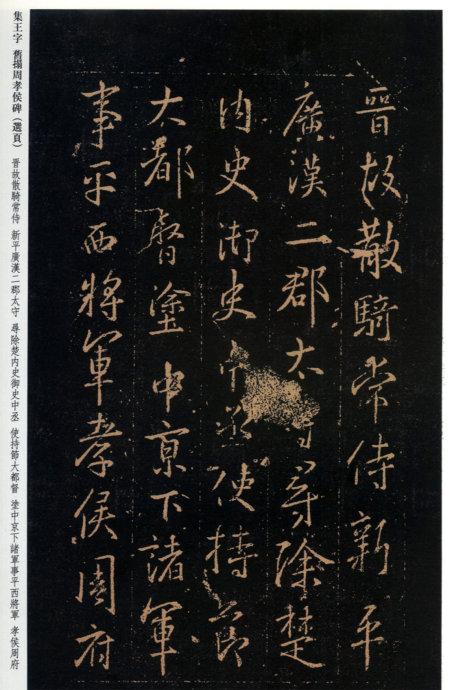 集王字 舊搨周孝侯碑（選頁） 晋故散騎常侍 新平廣漢二郡太守 尋除楚内史御史中丞 使持節大都督 塗中京下諸軍事平西將軍 孝侯周府
晉故散騎常侍新平
廣漢二郡太守尋除楚
内史御史中丞使持節
大都督塗中京下諸軍
事平西將軍孝侯周府